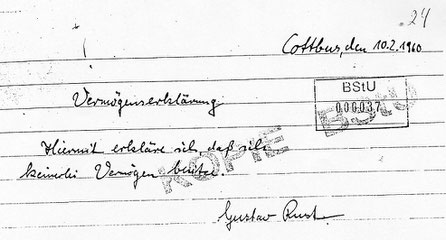 24
Cottbus, den 10.2.1960
BStU
000037
Vermögenserklärung
Hiermit erkläre ich, daß ich
keinerlei Vermögen besitze.
KOPIE BStU
Gustav Rust